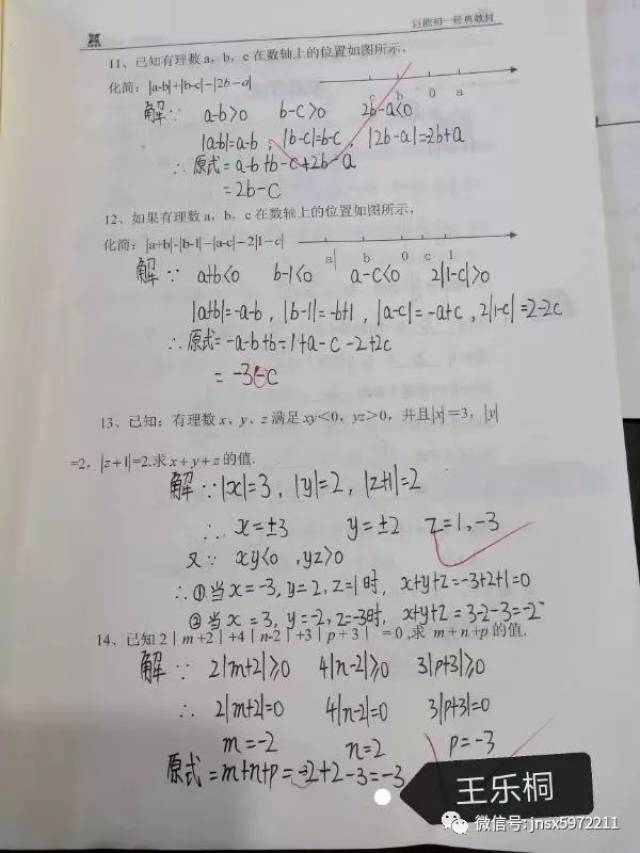 启航初一经典教材
11、已知有理数a,b,c在数轴上的位置如图所示,
化简: |a-b|+|b-c|-|2b-a|
c b 0 a
解∵ a-b>0 b-c>0 2b-a<0
|a-b|=a-b, |b-c|=b-c, |2b-a|=2b+a
∴原式=a-b+b-c+2b-a
=2b-c
12、如果有理数a,b,c在数轴上的位置如图所示,
化简: |a+b|-|b-1|-|a-c|-2|1-c|
a b 0 c 1
解∵ a+b<0 b-1<0 a-c<0 2|1-c|>0
|a+b|=-a-b, |b-1|=-b+1, |a-c|=-a+c, 2|1-c|=2-2c
∴原式=-a-b+b-1+a-c-2+2c
=-3+c
13、已知:有理数x、y、z满足xy<0, yz>0, 并且|x|=3, |y|
=2, |z+1|=2.求x+y+z的值.
解∵|x|=3, |y|=2, |z+1|=2
∴ x=±3 y=±2 z=1,-3
又∵ xy<0 ,yz>0
∴①当x=-3, y=2, z=1时, x+y+z=-3+2+1=0
②当x=3, y=-2, z=-3时, x+y+z=3-2-3=-2
14、已知2|m+2|+4|n-2|+3|p+3|=0,求m+n+p的值.
解∵ 2|m+2|≥0 4|n-2|≥0 3|p+3|≥0
∴ 2|m+2|=0 4|n-2|=0 3|p+3|=0
m=-2 n=2 p=-3
原式=m+n+p=-2+2-3=-3
王乐桐
微信号: jnsx5972211